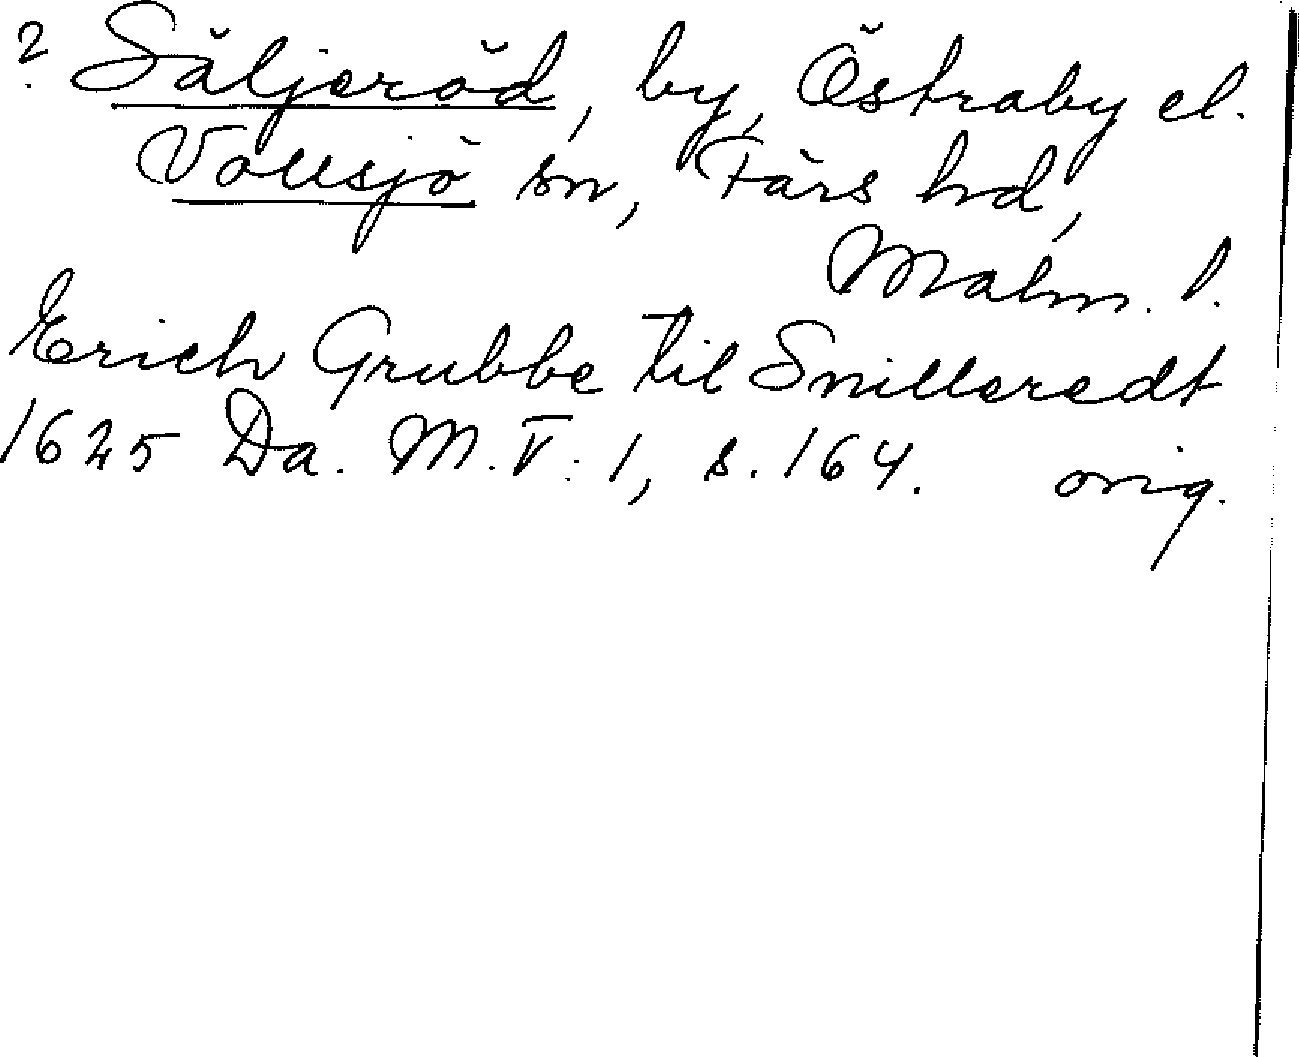 ? Säljeröd, by, Östraby el.
Vollsjö sn, Färs hd,
Malm. l.
Erich Grubbe til Snilleredt
1625 Da. M. V. 1, s. 164. orig.